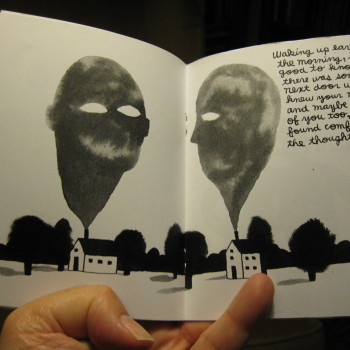 Waking up
the morning,
good to
there was
Next door
knew your
and maybe
of you too,
found
the thought